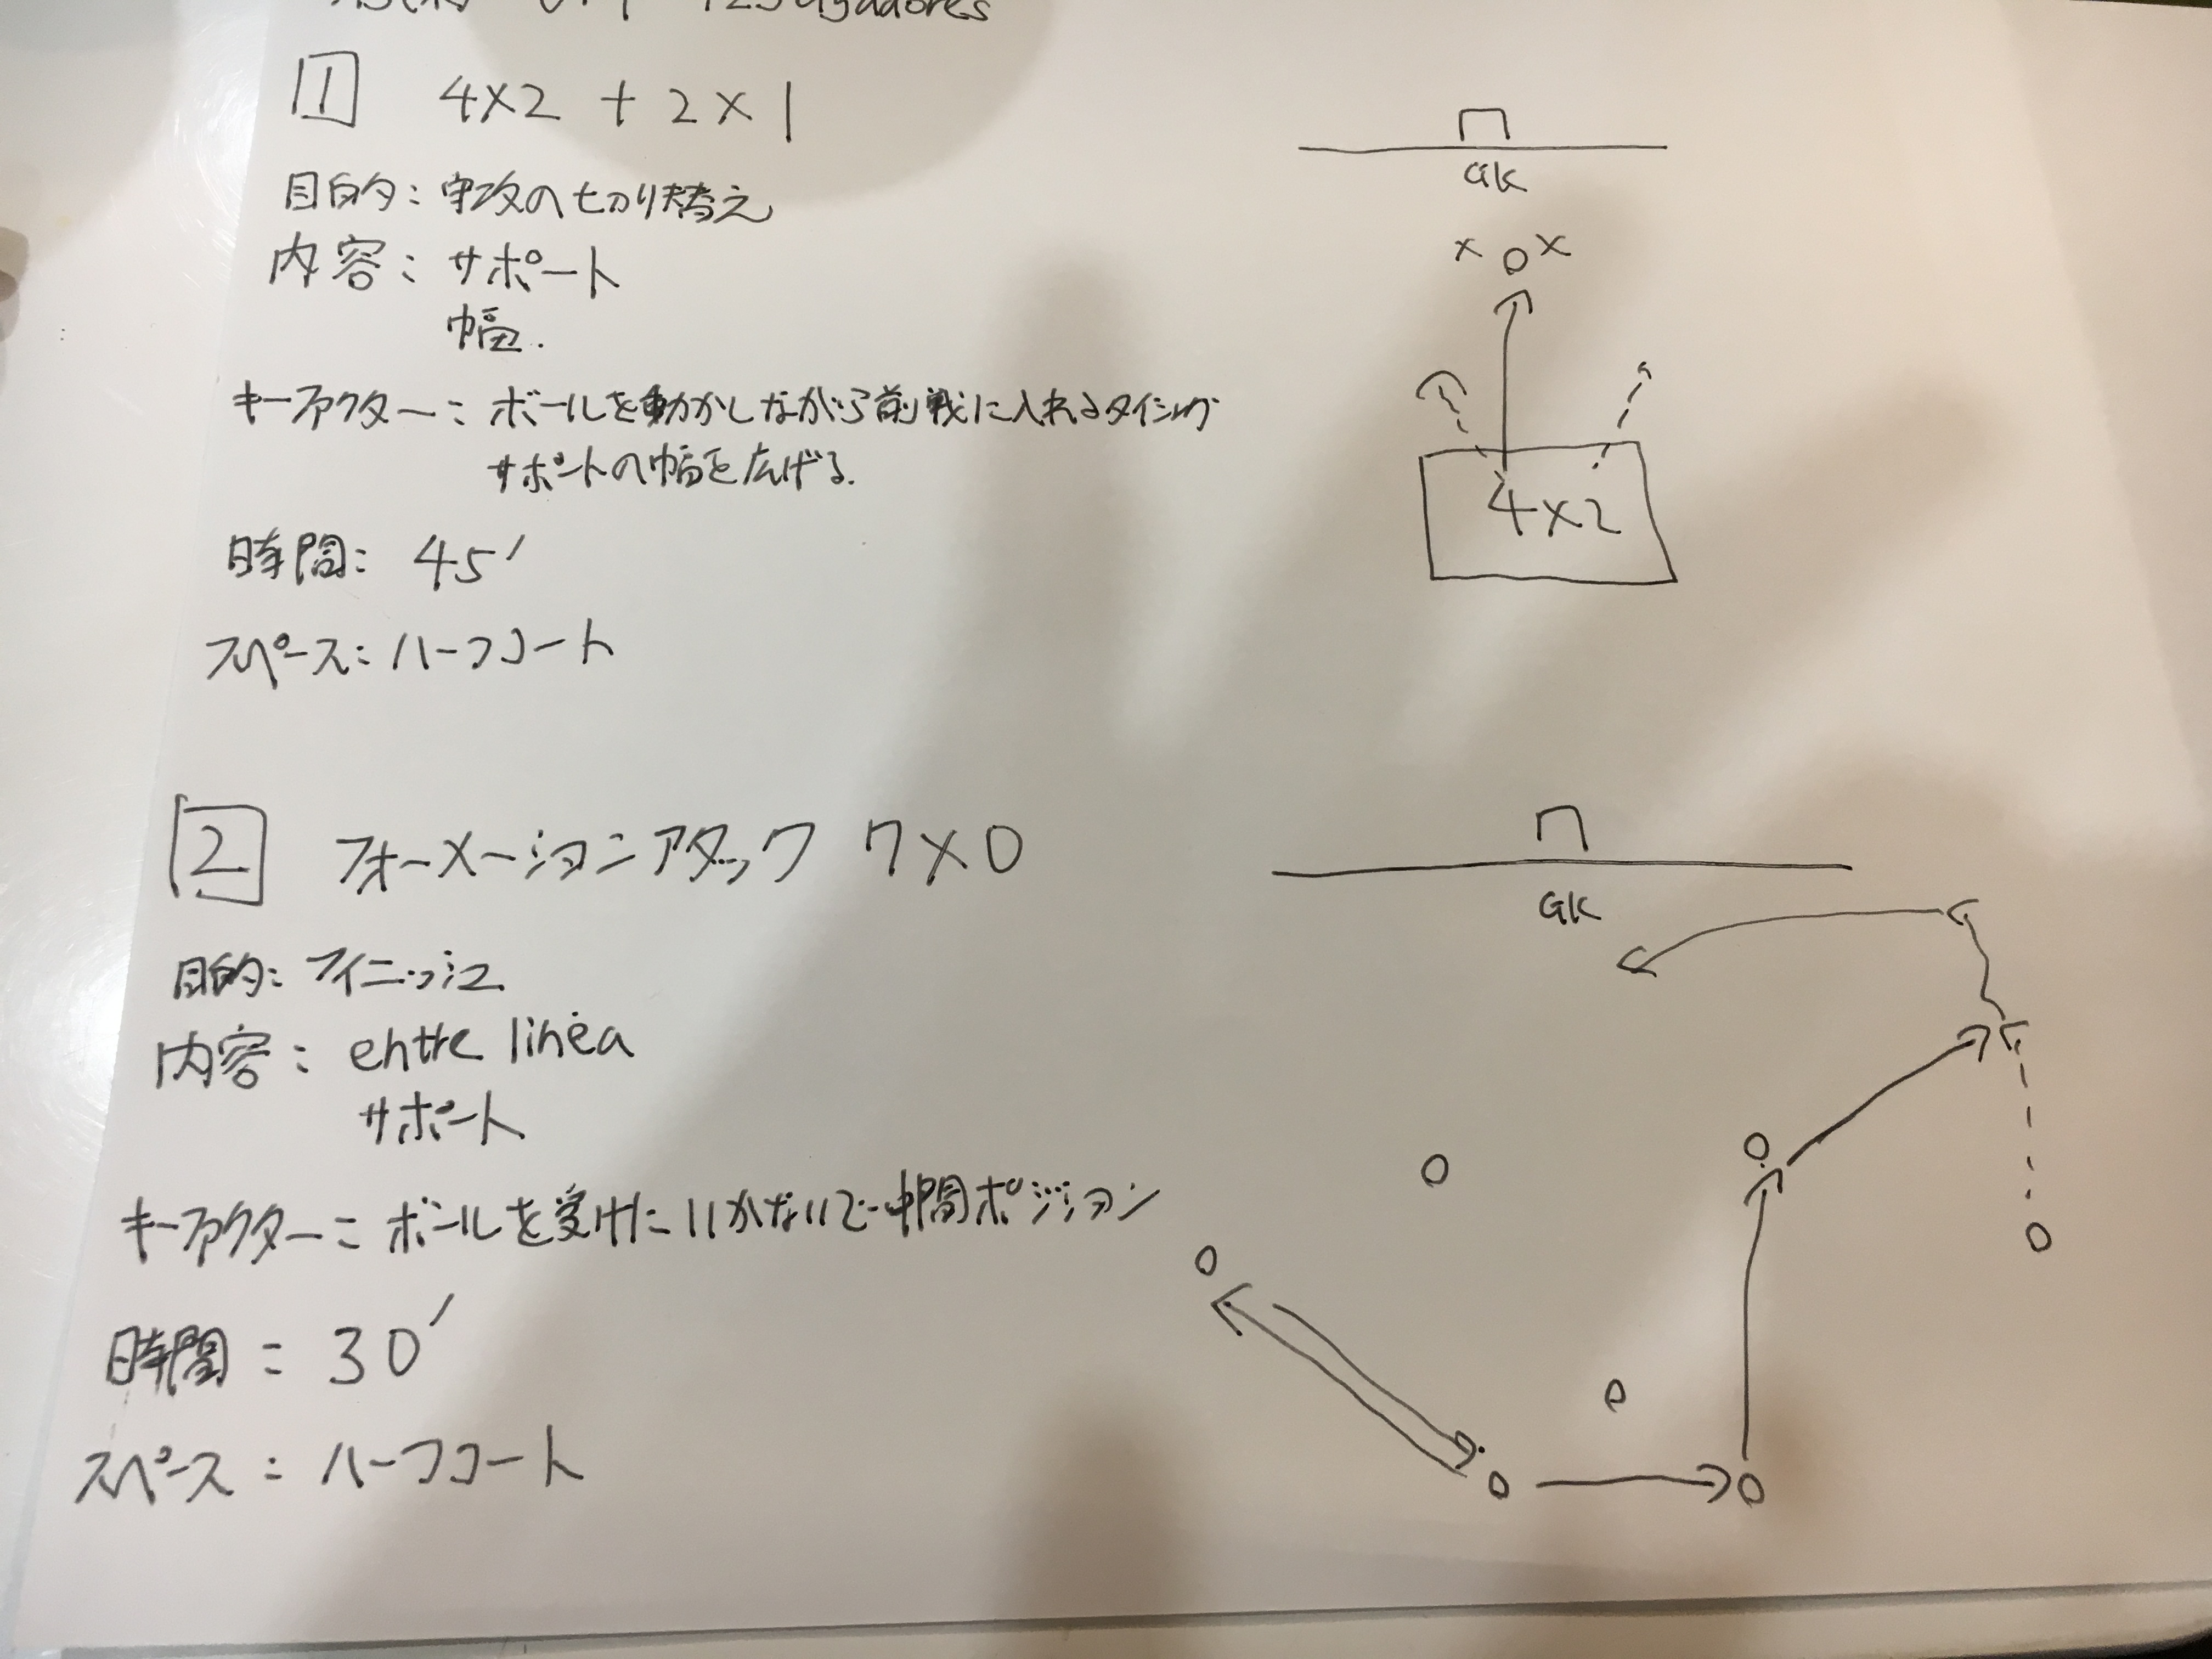 12 Jugadores
1 4×2 + 2×1
目的: 守攻の切り替え
内容: サポート
幅.
キーファクター: ボールを動かしながら前戦に入れるタイミング
サポートの幅を広げる.
時間: 45′
スペース: ハーフコート
GK
× O ×
4×2
2 フォーメーションアタック 7×0
目的: フィニッシュ
内容: entre linea
サポート
キーファクター: ボールを受けにいかないで中間ポジション
時間: 30′
スペース: ハーフコート
GK